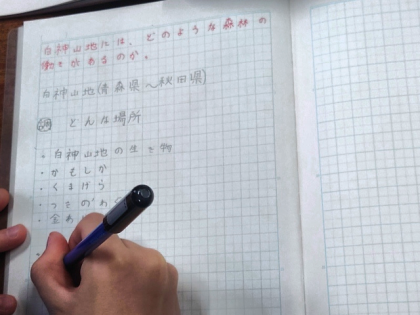 白神山地には、どのような森林の
働きがあるのか。
白神山地(青森県〜秋田県)
調 どんな場所
・白神山地の生き物
・かもしか
・くまげら